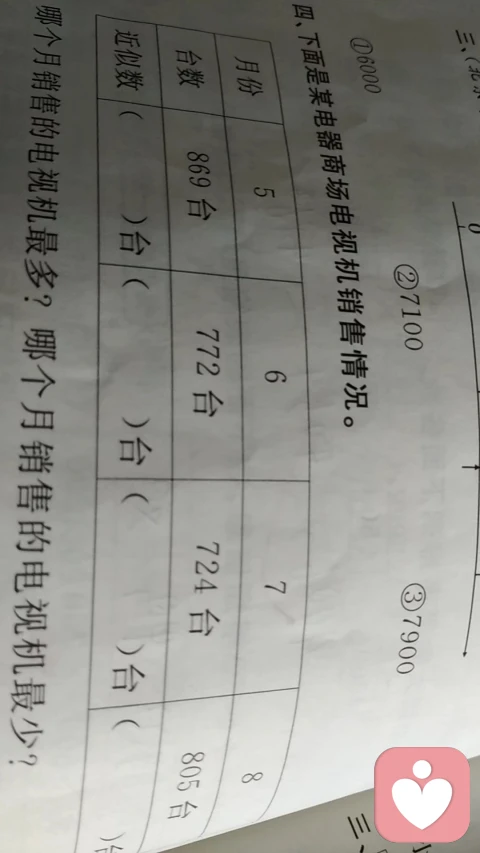 三、
0
①6000 ②7100 ③7900
四、下面是某电器商场电视机销售情况。
月份 5 6 7 8
台数 869台 772台 724台 805台
近似数 ( )台 ( )台 ( )台 ( )台
哪个月销售的电视机最多？哪个月销售的电视机最少？
三、